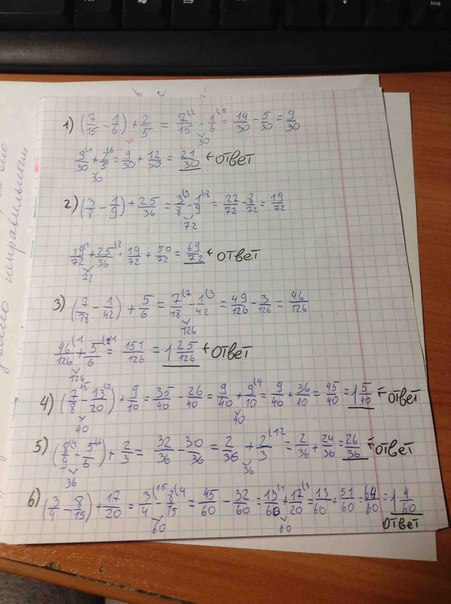 1) (7/15 - 1/6) + 2/5 = 7/15 - 1/6 = 14/30 - 5/30 = 9/30
9/30 + 2/5 = 9/30 + 12/30 = 21/30 ← ответ
2) (3/8 - 1/9) + 25/36 = 3/8 - 1/9 = 27/72 - 8/72 = 19/72
19/72 + 25/36 = 19/72 + 50/72 = 69/72 ← ответ
3) (7/18 - 1/42) + 5/6 = 7/18 - 1/42 = 49/126 - 3/126 = 46/126
46/126 + 5/6 = 151/126 = 1 25/126 ← ответ
4) (7/8 - 13/20) + 9/10 = 35/40 - 26/40 = 9/40 + 9/10 = 9/40 + 36/40 = 45/40 = 1 5/40 ← ответ
5) (8/9 - 5/6) + 2/3 = 32/36 - 30/36 = 2/36 + 2/3 = 2/36 + 24/36 = 26/36 ← ответ
6) (3/4 - 8/15) + 17/20 = 3/4 - 8/15 = 45/60 - 32/60 = 13/60 + 17/20 = 13/60 + 51/60 = 64/60 = 1 4/60
ответ